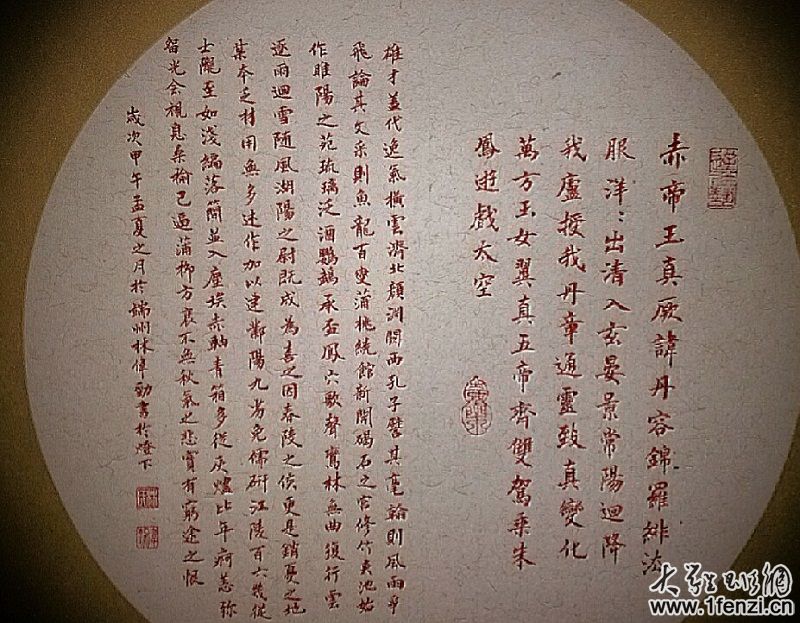 赤帝王真厥諱丹容錦羅緋法
服洋〻出清入玄晏景常陽迴降
我廬授我丹章通靈致真變化
萬方玉女翼真五帝齊雙駕乘朱
鳳遊戲太空
雄才蓋代逸氣橫雲濟北顏淵關西孔子譬其毫翰則風雨爭
飛論其文采則魚龍百变蒲桃繞館新開碣石之宮修竹夾池始
作睢陽之苑琉璃泛酒鸚鵡承盃鳳穴歌聲鸞林無曲復行雲
逐雨迴雪隨風湖陽之尉既成為喜之因舂陵之侯更是銷憂之地
某本乏材用無多述作加以建鄴陽九劣免儒硎江陵百六幾從
士隴至如淺編落簡並入塵埃赤軸青箱多從灰燼比年痾恙弥
留光会視息桑榆已逼蒲柳方衰不無秋氣之悲實有窮途之恨
歲次甲午孟夏之月於端州林偉勁書於燈下
www.1fenzi.cn